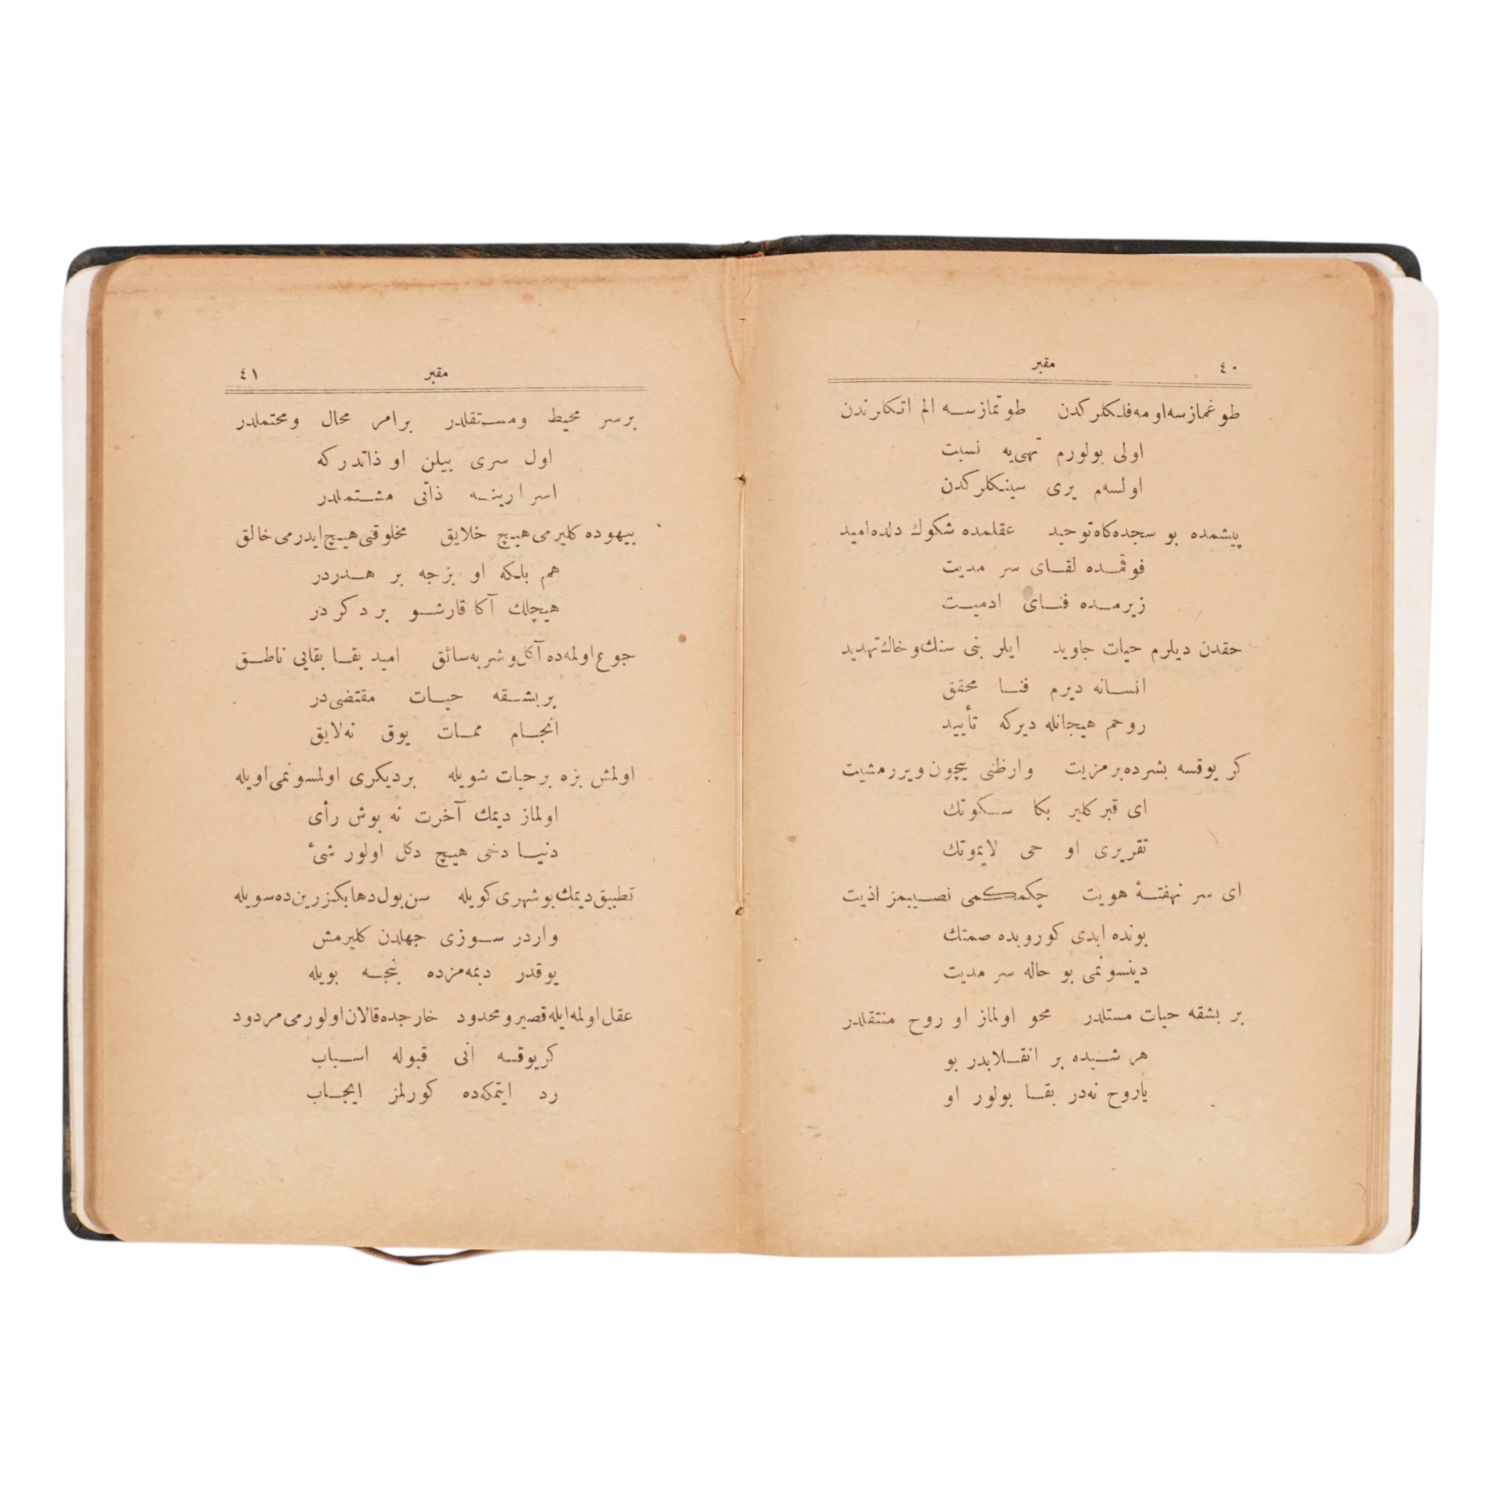 ٤٠
مقبر
طوغمازسه اومه فلكلركدن طوتمازسه الم اتكلرندن
اولی بولورم تهی‌یه نسبت
اولسه‌م یری سینكلركدن
پیشمده بو سجده‌كاه توحید عقلمده شكوك دلده امید
فوقمده لقای سرمدیت
زیرمده فنای ادمیت
حقدن دیلرم حیات جاوید ایلر بنی سنك و خاك تهدید
انسانه دیرم فنا محقق
روحم هیجانله دیركه تأیید
كر یوقسه بشرده بر مزیت وارظنی نیچون ویررمشیت
ای قبر كلیر بكا سكوتك
تقریری او حی لایموتك
ای سر نهفتۀ هویت چكمكمی نصیبمز اذیت
بونده ابدی كوروبده صمتك
دینسونمی بو حاله سرمدیت
بر بشقه حیات مستلدر محو اولماز او روح منتقلدر
هر شیده بر انقلابدر بو
یاروح نه‌در بقا بولور او
مقبر
٤١
برسر محیط ومستقلدر برامر محال ومحتملدر
اول سری بیلن او ذاتدركه
اسرارینه ذاتی مشتملدر
بیهوده كلیرمی هیچ خلایق مخلوقنی هیچ ایدرمی خالق
هم بلكه او بزجه بر هدردر
هیچلك آكا قارشو بر دكردر
جوع اولمه‌ده آكل و شربه سائق امید بقا بقایی ناطق
بربشقه حیات مقتضی‌در
انجام ممات یوق نه‌لایق
اولمش بزه بر حیات شویله بردیكری اولمسونمی اویله
اولماز دیمك آخرت نه بوش رأی
دنیا دخی هیچ دكل اولور شیٔ
تطبیق دیمك بوشهری كویله سن بول دها بكزرین ده سویله
واردر سوزی جهلدن كلیرمش
یوقدر دیمه‌مزده نیجه بویله
عقل اولمه ایله قصیر و محدود خارجده قالان اولورمی مردود
كریوقسه انی قبوله اسباب
رد ایتمكه‌ده كورلمز ایجاب